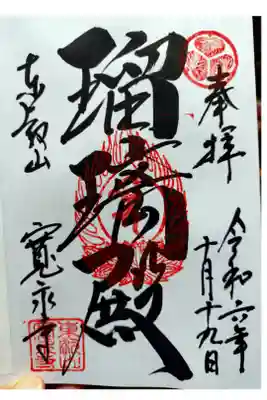 奉拝
令和六年
十月十九日
瑠璃殿
東叡山
寛永寺